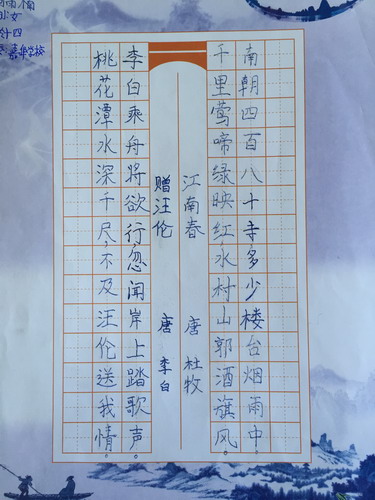 江南春 唐 杜牧
千里莺啼绿映红,水村山郭酒旗风。
南朝四百八十寺,多少楼台烟雨中。
赠汪伦 唐 李白
李白乘舟将欲行,忽闻岸上踏歌声。
桃花潭水深千尺,不及汪伦送我情。